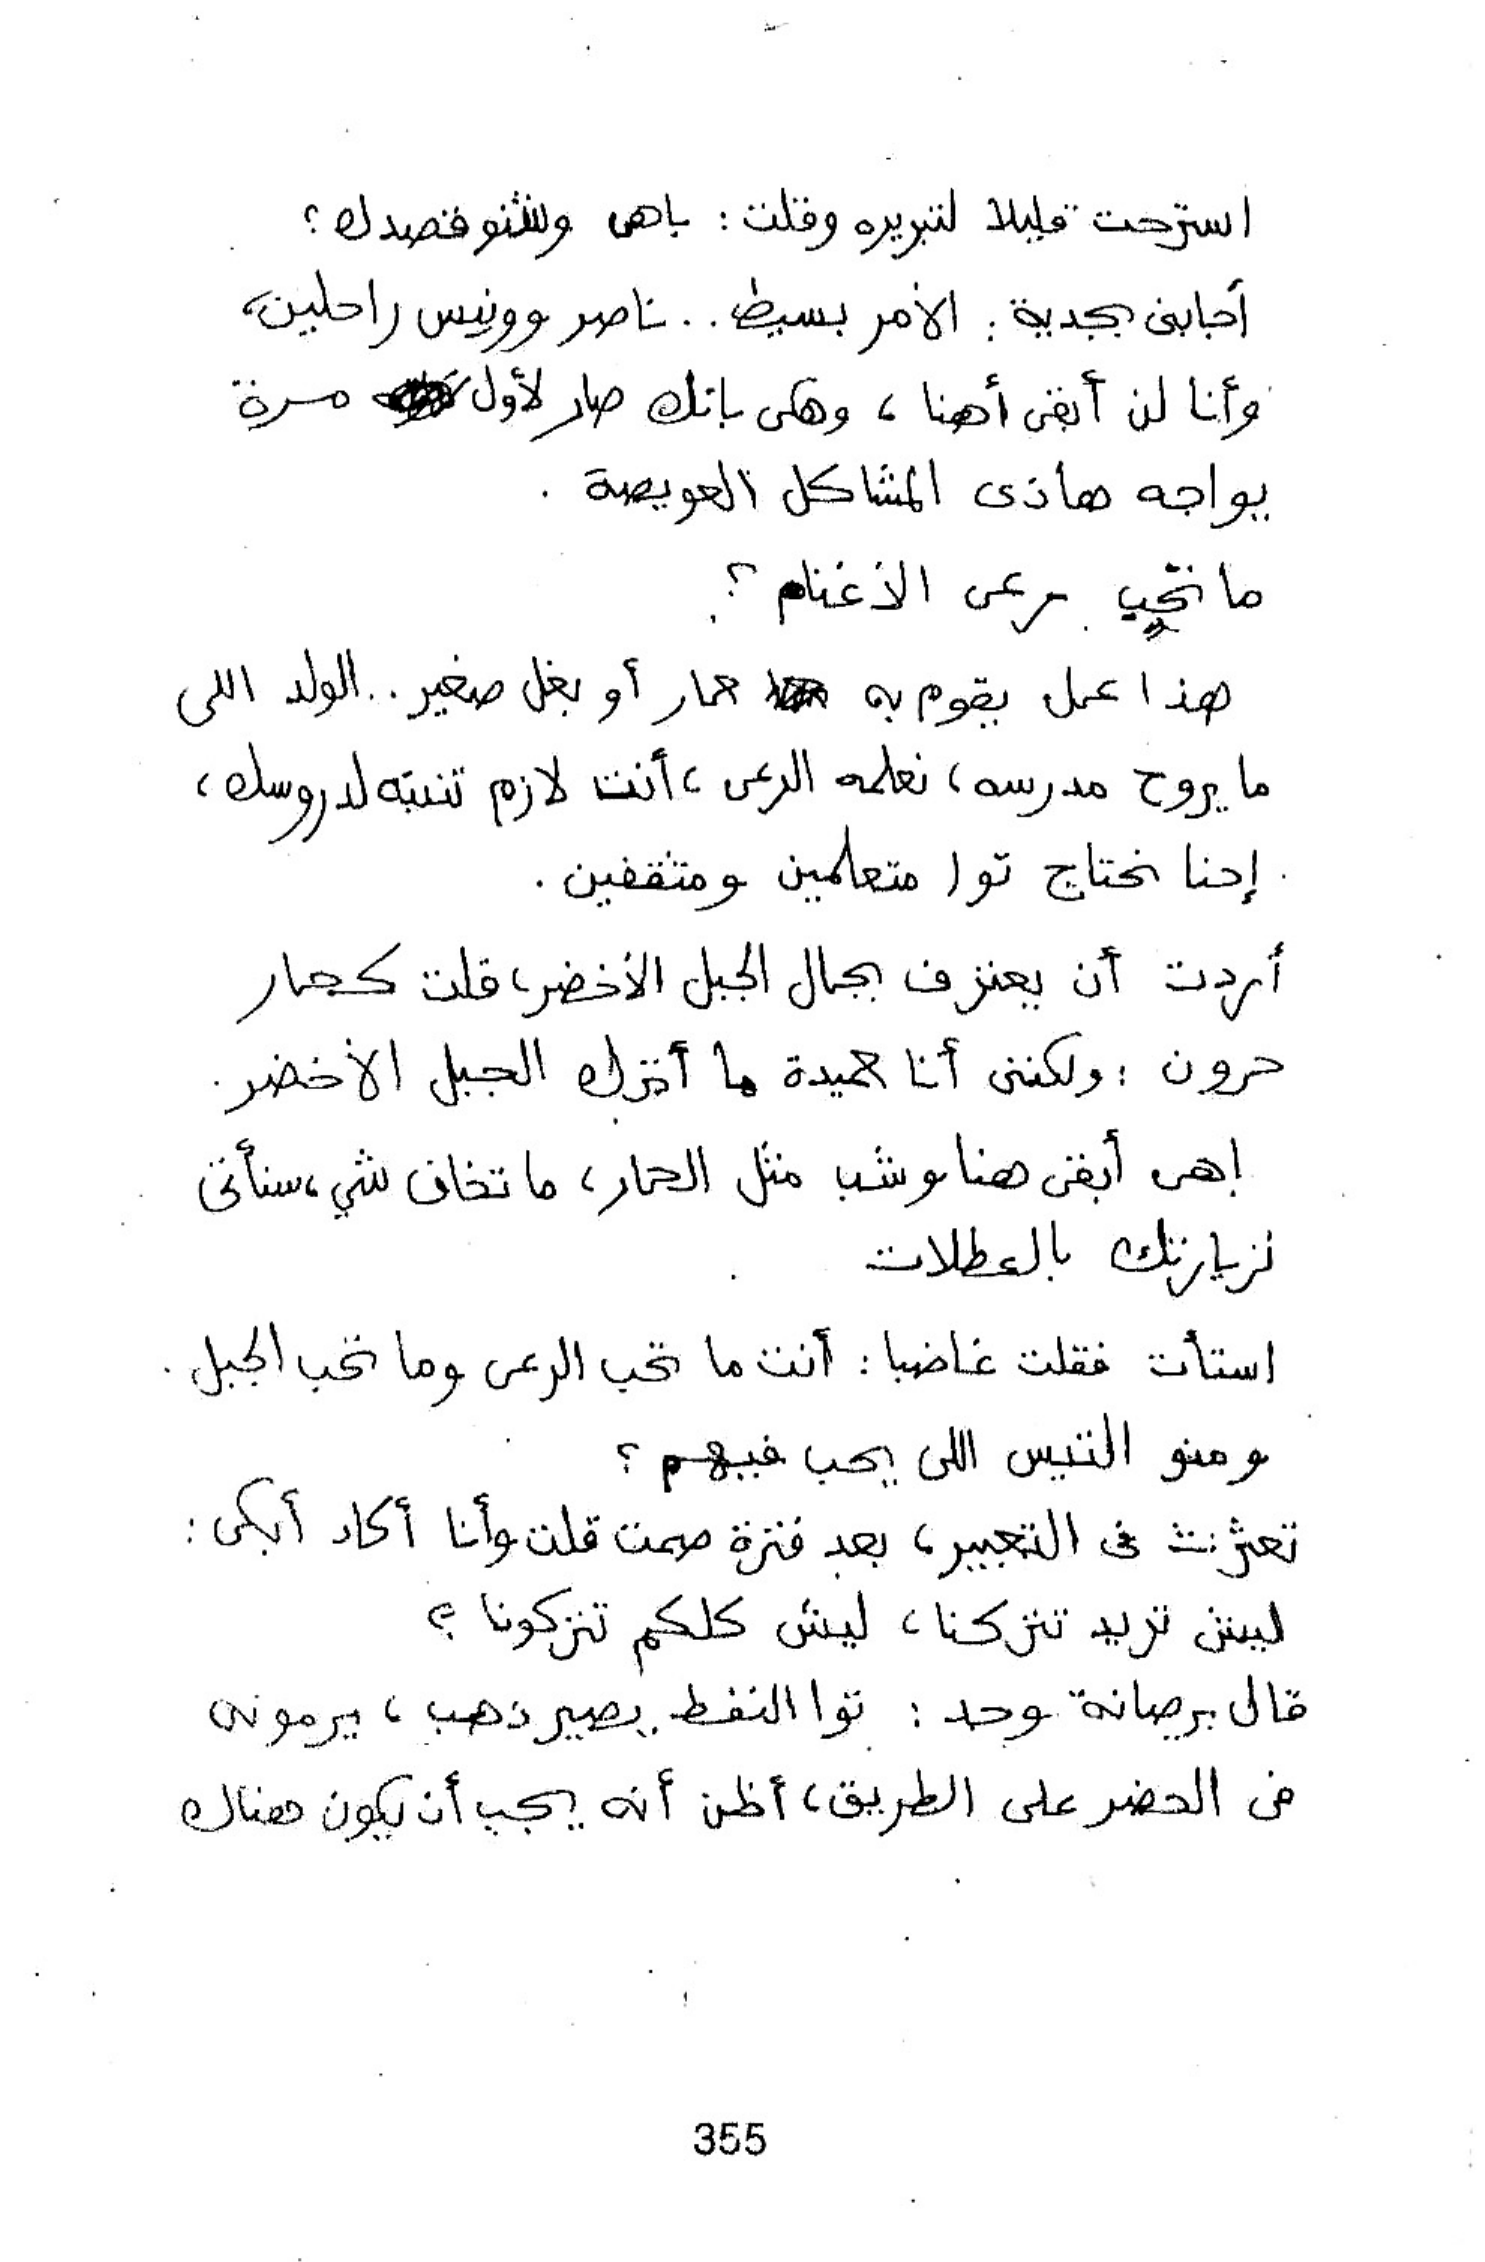 استرحت قليلا لتبريره وقلت : باهى وشنو قصدك ؟
أجابنى بجدية : الأمر بسيط .. ناصر وونيس راحلين،
وأنا لن أبقى أهنا ، وهكى باتك صار لأول مرة
يواجه هاذى المشاكل العويصة .
ما تحب رعى الأغنام ؟
هذا عمل يقوم به حمار أو بغل صغير .. الولد اللى
ما يروح مدرسه ، نعلمه الرعى ، أنت لازم تنتبه لدروسك ،
إحنا نحتاج توا متعلمين ومثقفين .
أردت أن يعترف بجمال الجبل الأخضر، قلت كحمار
حرون : ولكننى أنا حميدة ما أترك الجبل الأخضر .
إهى أبقى هنا وشب مثل الحمار ، ما تخاف شي ، سنأتى
لزيارتك بالعطلات
استأت فقلت غاضبا : أنت ما تحب الرعى وما تحب الجبل .
ومنو التيس اللى يحب فيهم ؟
تعثرت فى التعبير ، بعد فترة صمت قلت وأنا أكاد أبكى :
ليش تريد تتركنا ، ليش كلكم تتركونا ؟
قال برصانة وحد : توا النفط يصير ذهب ، يرمونه
فى الحضر على الطريق ، أظن أنه يجب أن يكون هناك
355